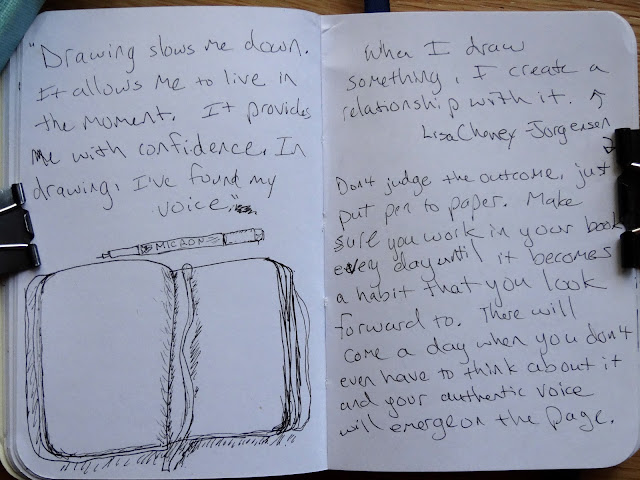 "Drawing slows me down.
It allows me to live in
the moment. It provides
me with confidence. In
drawing, I've found my
voice."
MICRON
When I draw
something, I create a
relationship with it. ↑
Lisa Cheney-Jorgensen
Don't judge the outcome, just
put pen to paper. Make
sure you work in your book
every day until it becomes
a habit that you look
forward to. There will
come a day when you don't
even have to think about it
and your authentic voice
will emerge on the page.